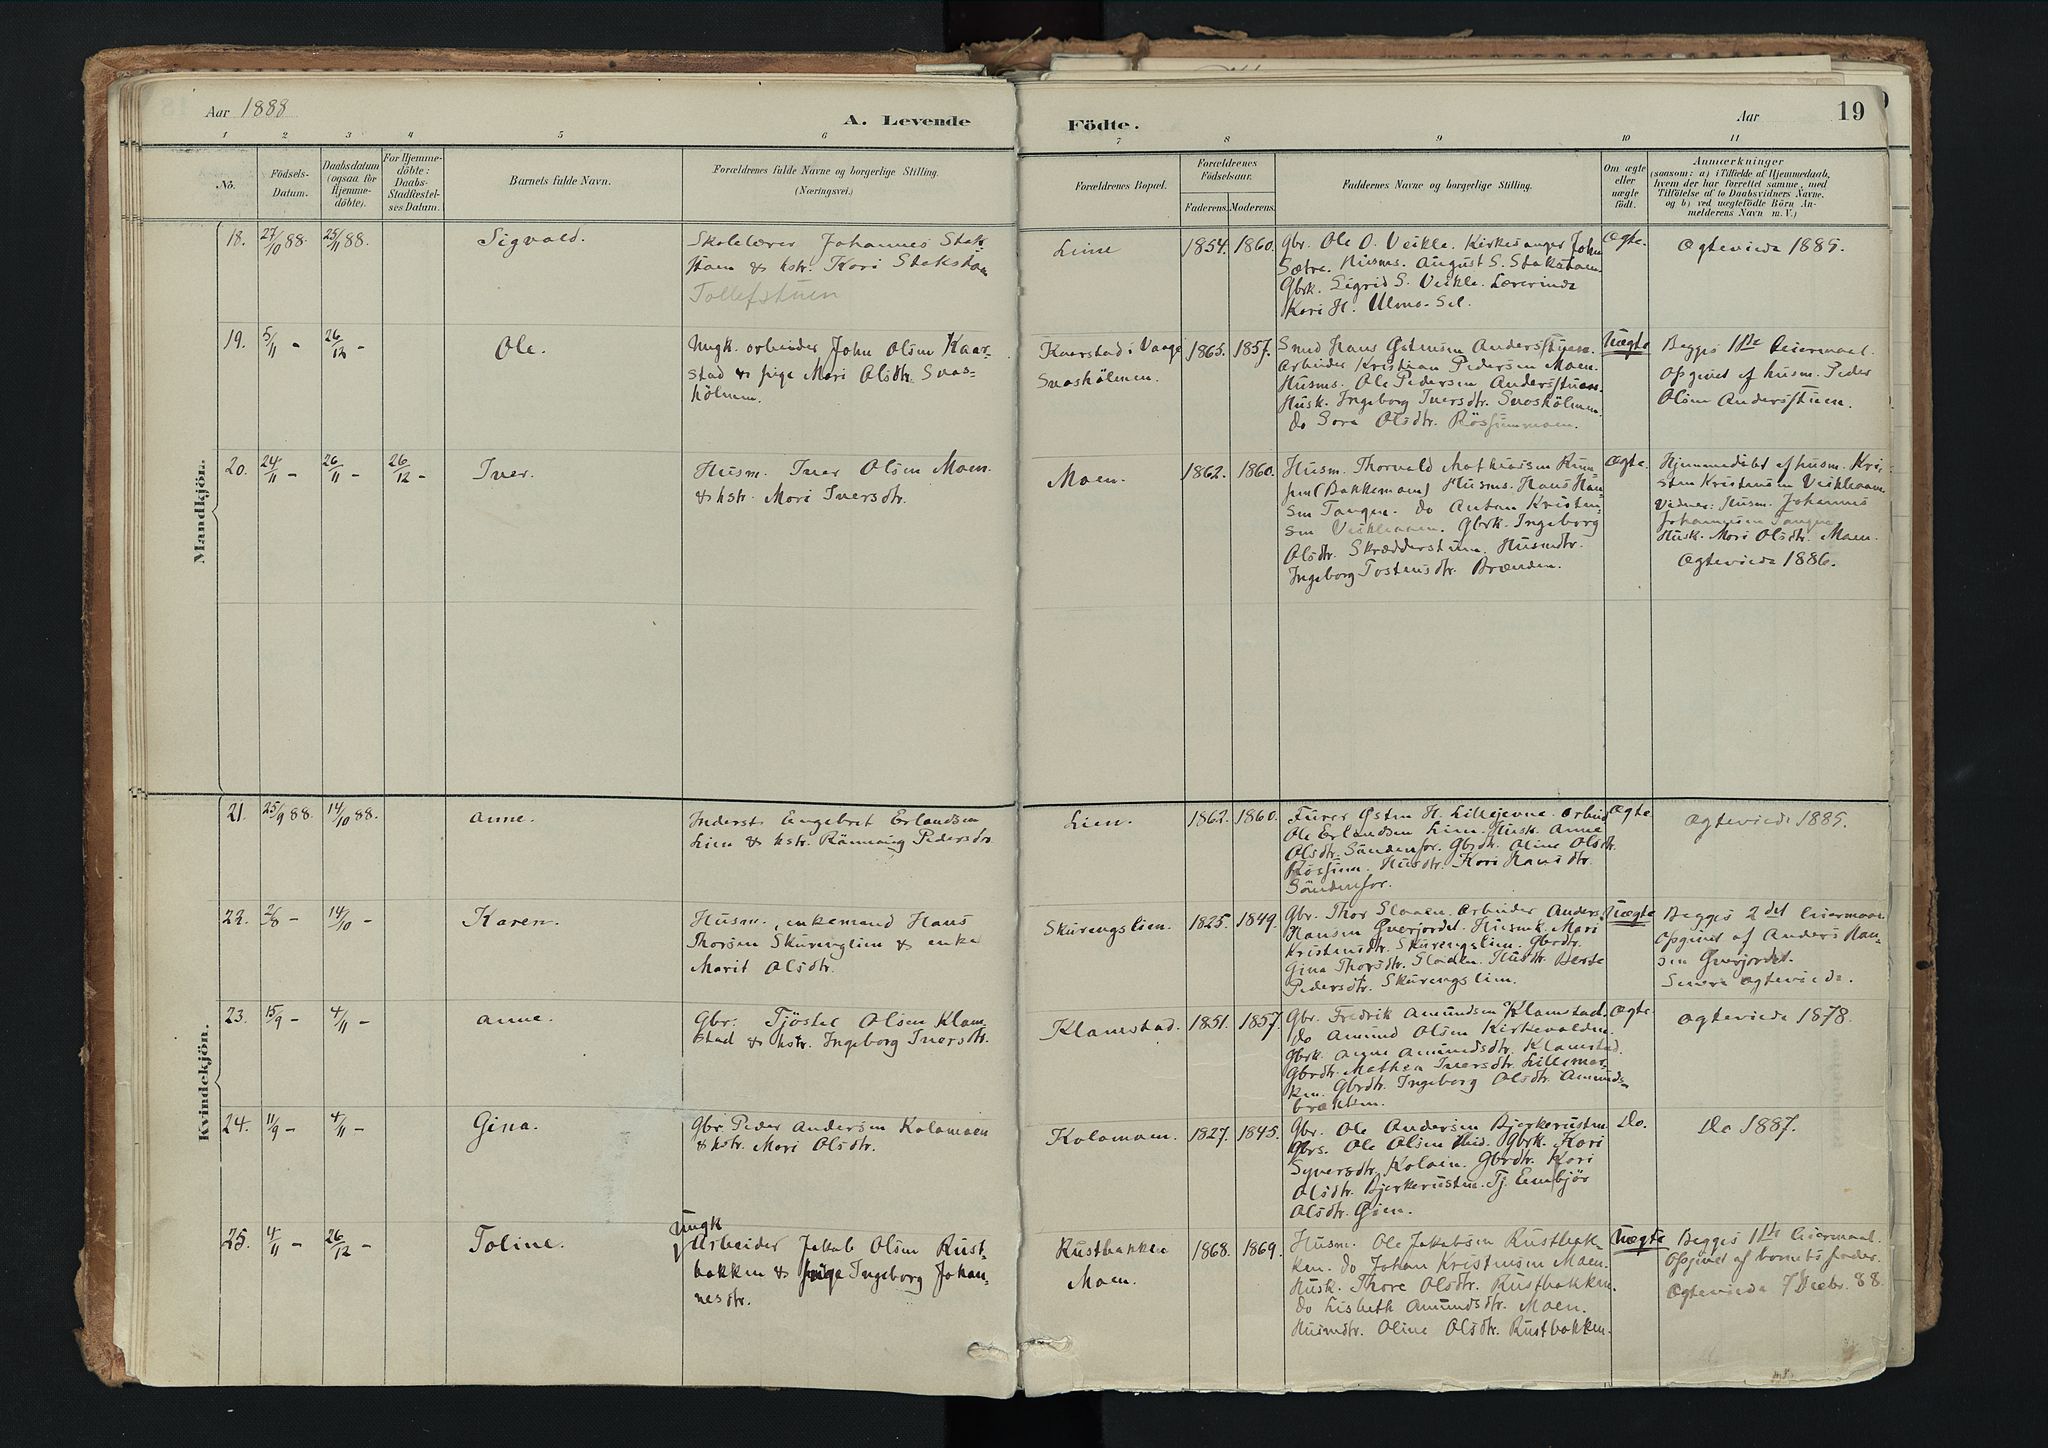 Aar 1888
A. Levende Födte.
Aar
19
1 2 3 4 5 6 7 8 9 10 11
No.
Födsels-
Datum.
Daabsdatum
(ogsaa for
Hjemme-
döbte).
For Hjemme-
döbte:
Daabs-
Stadfæstel-
ses Datum.
Barnets fulde Navn.
Forældrenes fulde Navne og borgerlige Stilling.
(Næringsvei.)
Forældrenes Bopæl.
Forældrenes
Födselsaar.
Faderens. Moderens.
Faddernes Navne og borgerlige Stilling.
Om ægte
eller
uægte
födt.
Anmærkninger
(saasom: a) i Tilfælde af Hjemmedaab,
hvem der har forrettet samme, med
Tilföielse af to Daabsvidners Navne,
og b) ved uægtefödte Börn An-
melderens Navn m. V.)
Mandkjön.
18. 27/10 88. 25/11 88.
Sigvald.
Skolelærer Johannes Stak-
staen & hstr. Kari Stakstaen
Tollefstuen
Line
1854. 1860.
Gbr. Ole O. Veikle. Kirkesanger John
Sætre. Husms. August S. Stakstaen.
Gbrk. Sigrid S. Veikle. Lærerinde
Kari H. Ulmo-Sel.
Ægte.
Ægteviede 1885.
19. 5/11 - 26/12 -
Ole.
Ungk. arbeider John Olsen Kaar-
stad & pige Mari Olsdtr. Svas-
hölmen.
Kaarstad i Vaage
Svashölmen.
1865. 1857.
Smed Hans Østensen Andersstuen.
Arbeider Kristian Pedersen Moen.
Husms. Ole Pedersen Andersstuen
Husk. Ingeborg Iversdtr. Svashölmen.
do Sora Olsdtr. Rössummoen.
Uægte
Begges 1ste Leiermaal.
Opgivet af husm. Peder
Olsen Andersstuen.
20. 24/11 - 26/11 - 26/12 -
Iver.
Husm. Iver Olsen Moen
& hstr. Mari Iversdtr.
Moen.
1862. 1860.
Husm. Thorvald Mathiassen
(Bakkemoen) Husms. Hans Han-
sen Tangen. do Anton Kristen-
sen Veikleaaen. Gbrk. Ingeborg
Olsdtr. Skrædderstuen. Husmdtr.
Ingeborg Tostensdtr. Brænden.
Ægte.
Hjemmedöbt af husm. Kri-
sten Kristensen Veikleaaen
Vidner: Husm. Johannes
Johannesen Tangen
Husk. Mari Olsdtr. Moen.
Ægteviede 1886.
Kvindekjön.
21. 25/9 88. 14/10 88.
Anne.
Inderst Engebret Erlandsen
Lien & hstr. Rönnaug Pedersdtr
Lien.
1862. 1860.
Furer Østen H. Lillejevne. Arbeid
Ole Erlandsen Lien. Husk. Anne
Olsdtr. Söndenfor. Gbrdtr. Oline Olsdtr.
Rössum. Husdtr. Kari Hansdtr.
Söndenfor.
Ægte.
Ægteviede 1885.
22. 2/8 - 14/10 -
Karen.
Husm., enkemand Hans
Thorsen Skurenglien & enke
Marit Olsdtr.
Skurengslien.
1825. 1849.
Gbr. Thor Slaaen. Arbeider Anders
Hansen Qverjordet. Husmk. Mari
Kristensdtr. Skurengslien. Gbrdtr.
Gina Thorsdtr. Slaaen. Husdtr. Berte
Pedersdtr. Skurengslien.
Uægte
Begges 2det Leiermaal
Opgivet af Anders Han-
sen Qverjordet.
Senere ægteviede.
23. 15/9 - 4/11 -
Anne.
Gbr. Tjöstel Olsen Klam-
stad & hstr. Ingeborg Iversdtr.
Klamstad.
1851. 1857.
Gbr. Fredrik Amundsen Klamstad.
do Amund Olsen Kirkevolden.
Gbrk. Anne Amundsdtr. Klamstad.
Gbrdtr. Mathea Iversdtr. Lillemar-
ken. Gbrdtr. Ingeborg Olsdtr. Amunds-
brækken.
Ægte.
Ægteviede 1878.
24. 11/9 - 4/11 -
Gina.
Gbr. Peder Andersen Kolomoen
& hstr. Mari Olsdtr.
Kolomoen.
1827. 1845.
Gbr. Ole Andersen Bjerkerusten
Gbrs. Ole Olsen ibid. Gbrk. Kari
Syversdtr. Koloen. Gbrdtr. Kari
Olsdtr. Bjerkerusten. Tj. Embjör
Olsdtr. Øien.
Do.
Do 1887.
25. 4/11 - 26/12 -
Toline.
Ungk
Arbeider Jakob Olsen Rust-
bakken & pige Ingeborg Johan-
nesdtr.
Rustbakken
Moen.
1868. 1869.
Husm. Ole Jakobsen Rustbak-
ken. do Johan Kristensen Moen.
Husk. Thore Olsdtr. Rustbakken.
do Lisbeth Amundsdtr. Moen.
Husmdtr. Oline Olsdtr. Rustbakken.
Uægte
Begges 1ste Leiermaal.
Opgivet af barnets fader.
Ægteviede 7 Decbr. 88.